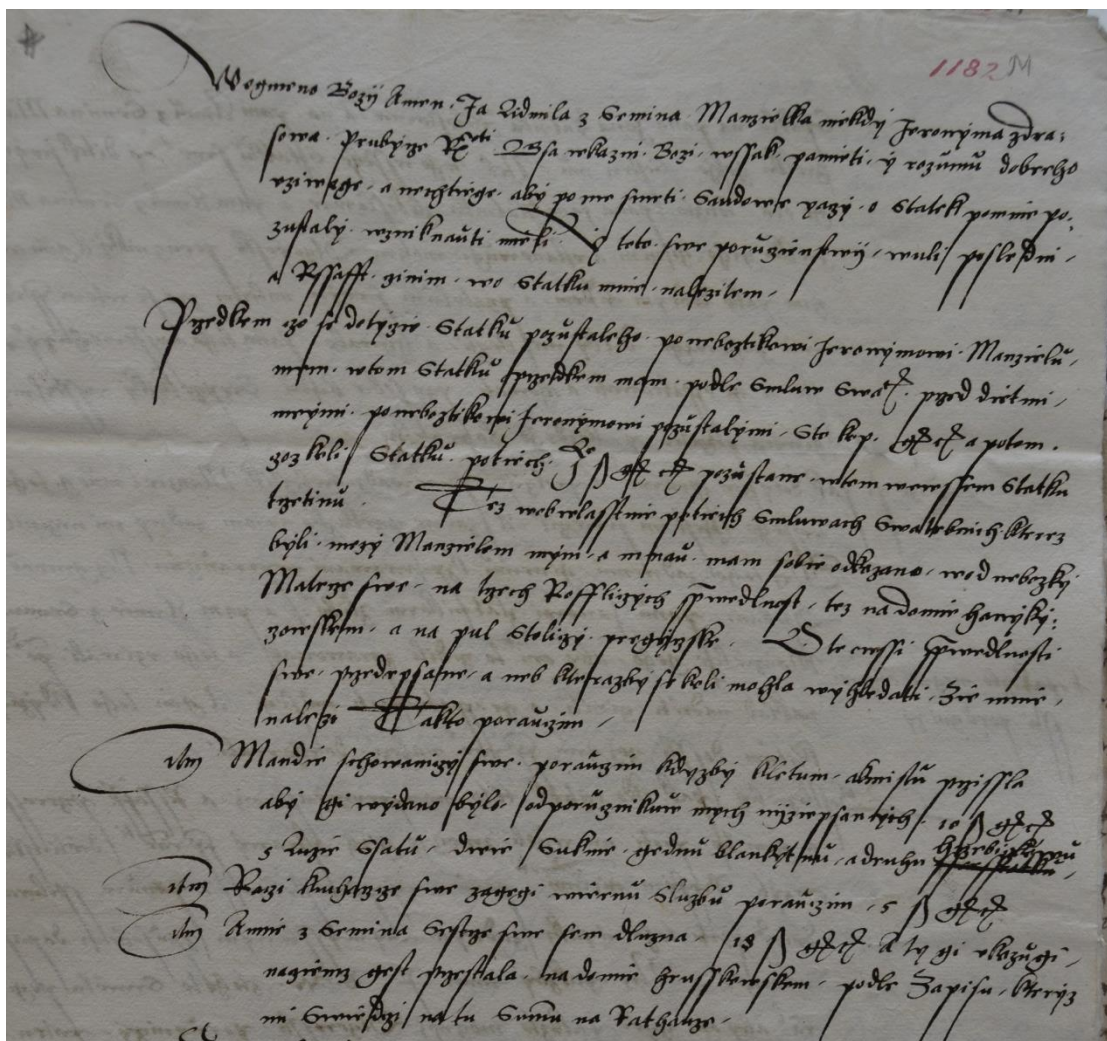 1182 M
Wogmeno Bozy Amen. Ja Lidmila z Semina Manzielka niekdy Jeronyma zdra:
sowa. Prubyrze Rx Mti. Gsa wkazni. Bozi. wssak pamieti. y rozumu dobreho
vziwage. a nechtiege. aby po me smrti. Saudowe yazy. o Statek pomnie po:
zustaly. wzniknauti mieli. Y toto swe poruzienstwij. wuli posledni.
a Kssafft. zinim. wo Statku mnie. nalezitem.
Przedkem zo se dotyzie Statku pozustaleho. po neboztikowi Jeronymowi. Manzielu
mem. wtom Statku przedkem mam. podle Smluw Swa. przed dietmi
meymi. po neboztikowi Jeronymowi pozustalymi. Sto kop. gr cz a potom.
zoz koli Statku. potiech. gr cz pozustane. wtom wewssem Statku
trzetinu. Tez wobwlasstnie potiech Smluwach Swatebnich. kterez
byli. mezy Manzielem mym. a mnau. mam sobie odkazano. wod nebozky
Matere swe. na trzech spwedlnost. tez na domie
zowskem. a na pul Stolizy. O te wssi spwedlnosti
swe. przedepsane. a neb kterazby se koli mohla wyhledati. Zie mnie
nalezi Takto porauzim.
Itm Mandie schowanizy swe. porauzim kdyzby kletum. abmistu przissla
aby gi wydano bylo. odporuznikuw mych niziepsanych. 10 ß gr cz
5 Luzie Ssatu. dwie Suknie. gednu blankytnu. a druhu hrzebiczkowu
Itm Rozi kucharze swe zagegi wiernu Sluzbu porauzim. 5 ß gr cz
Itm Annie z Semina Sestrze swe sem dluzna. 18 ß gr cz A ty gi vkazugi.
nagiemz gest przestala. na domie hrusskowskem. podle Zapisu. kteryz
mi Swiedzi na tu Summu na Rathauze.